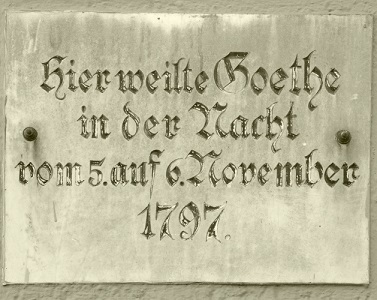 Hier weilte Goethe
in der Nacht
vom 5. auf 6. November
1797.